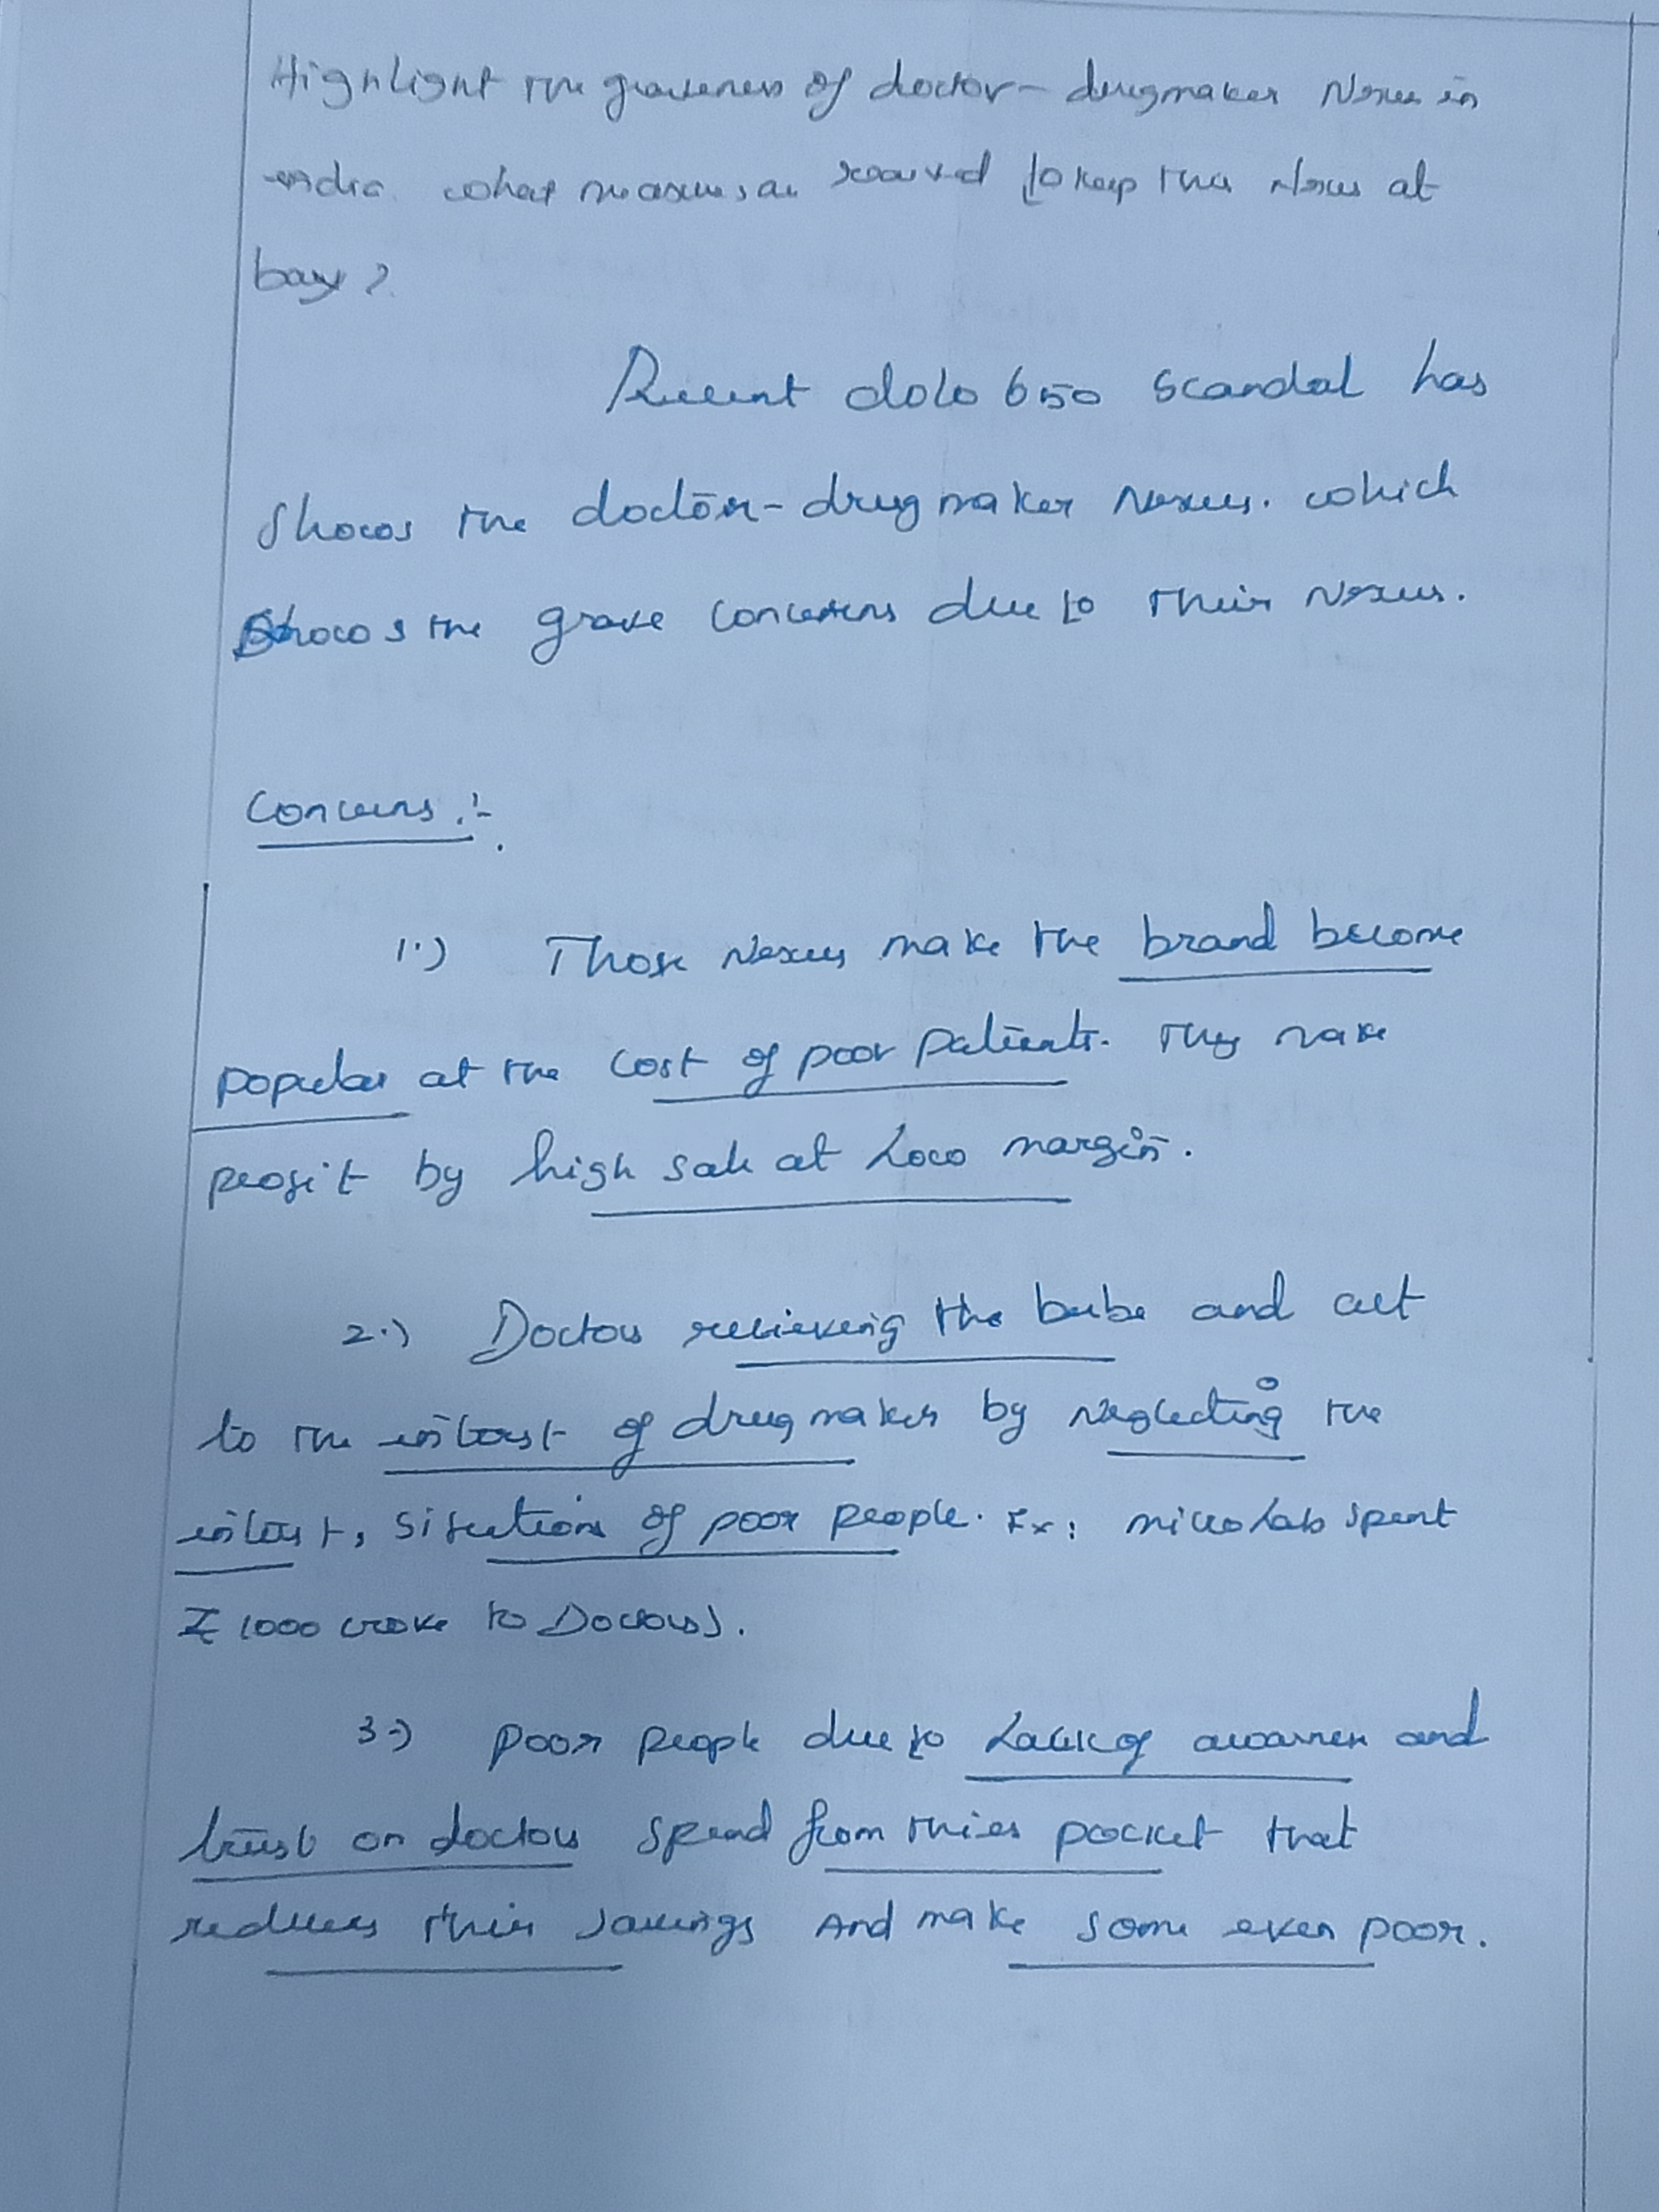 Highlight the graveness of doctor-drugmaker Nexus in
India. what measures are required to keep this Nexus at
bay?
Recent dolo 650 scandal has
shows the doctor-drug maker Nexus. which
shows the grave concerns due to their Nexus.
Concerns :-
1.) Those Nexus make the brand become
popular at the cost of poor patients. They make
profit by high sale at Low margin.
2.) Doctors recieveing the bribe and act
to the intrest of drug maker by neglecting the
intrest, situations of poor people. Ex: micro Lab spent
₹ 1000 crore to Doctors).
3.) poor people due to Lack of awarness and
trust on doctors spend from thier pocket that
reduces their savings And make some even poor.